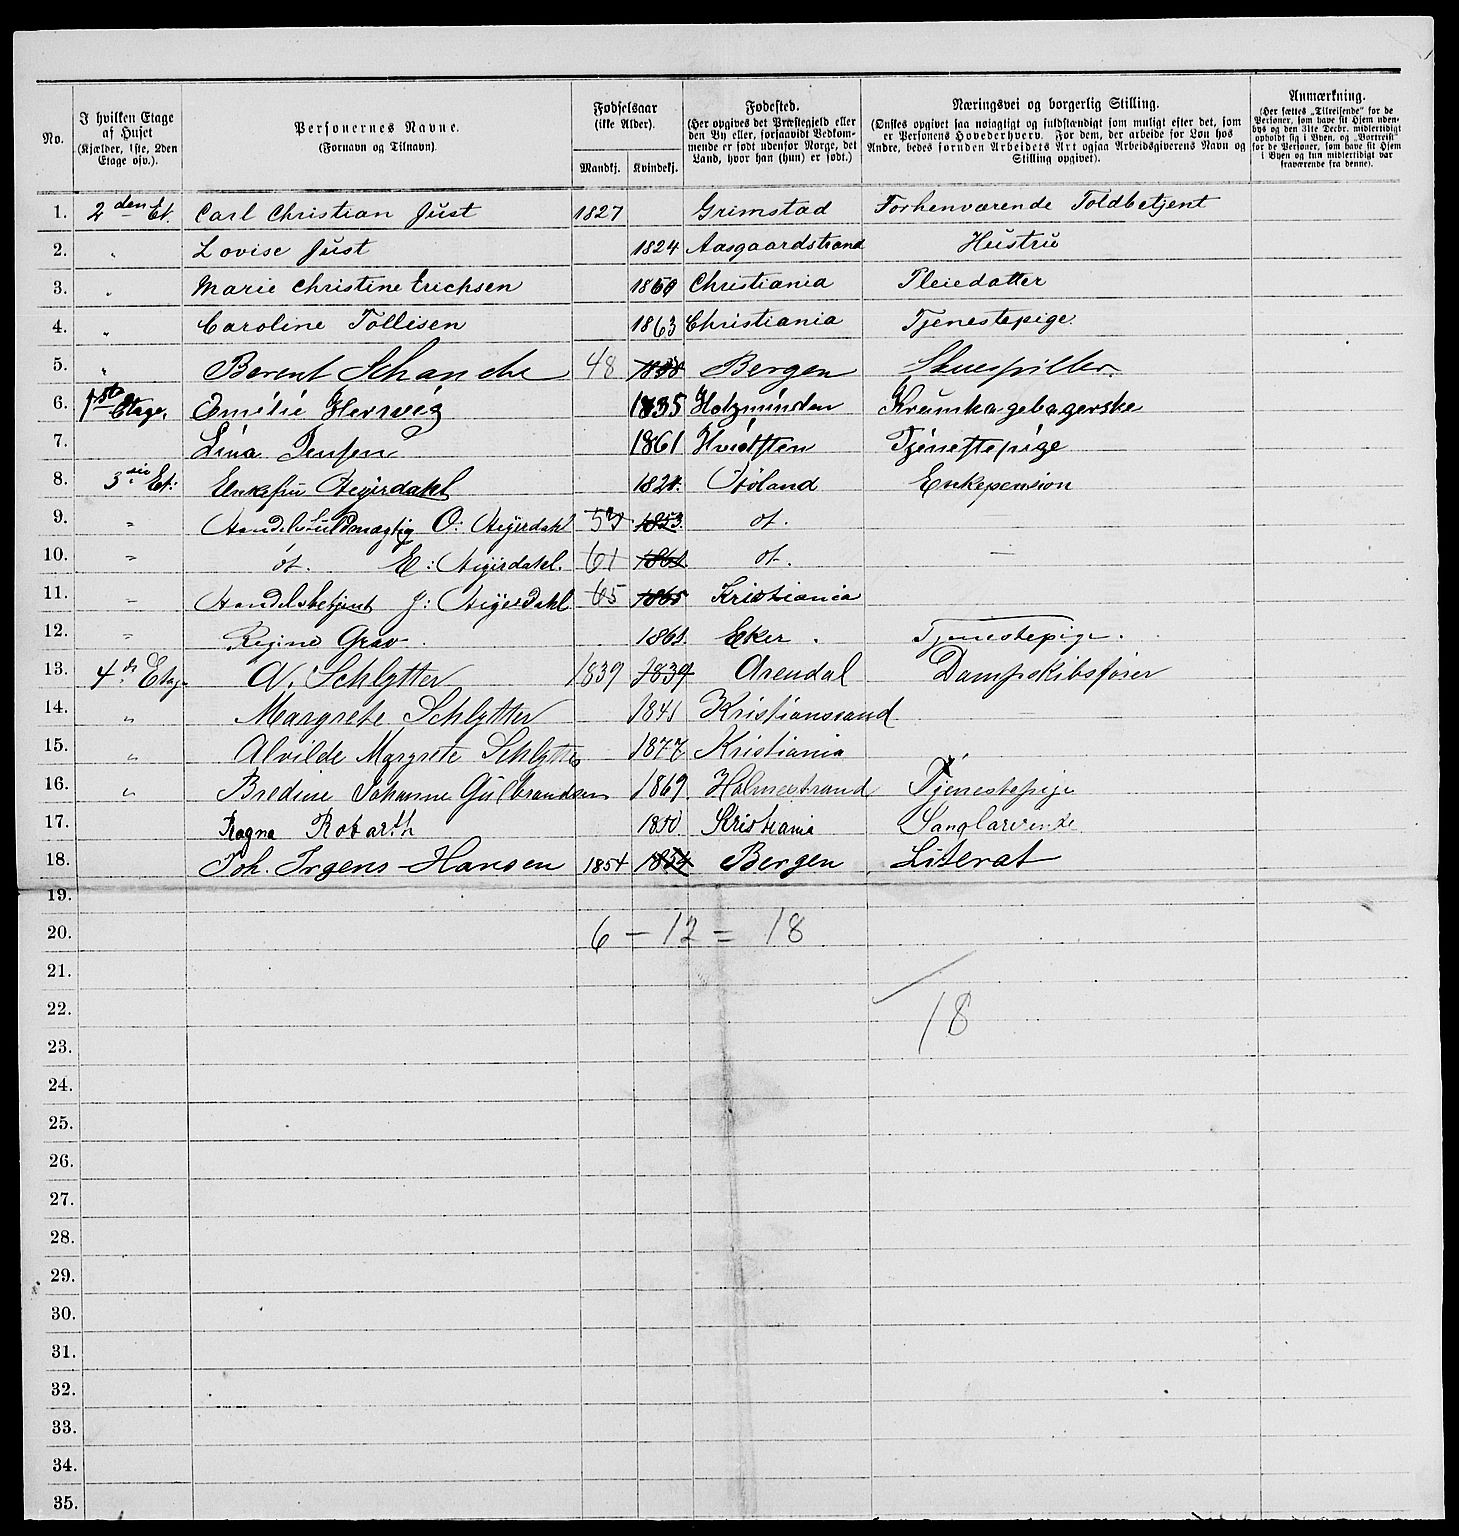 No. | I hvilken Etage af Huset (Kjælder, 1ste, 2den Etage osv.). | Personernes Navne. (Fornavn og Tilnavn). | Fødselsaar (ikke Alder). Mandkj. | Kvindekj. | Fødested. (Her opgives det Præstegjeld eller den By eller, forsaavidt Vedkommende er født udenfor Norge, det Land, hvor han (hun) er født.) | Næringsvei og borgerlig Stilling. (Ønskes opgivet saa nøiagtigt og fuldstændigt som muligt efter det, som er Personens Hovederhverv. For dem, der arbeide for Løn hos Andre, bedes foruden Arbeidets Art ogsaa Arbeidsgiverens Navn og Stilling opgivet). | Anmærkning. (Her sættes „Tilreisende“ for de Personer, som have sit Hjem udenbys og den 31te Decbr. midlertidigt opholdt sig i Byen, og „Bortreist“ for de Personer, som have sit Hjem i Byen og kun midlertidigt var fraværende fra denne).
1. 2den Et. Carl Christian Just 1827 Grimstad Forhenværende Toldbetjent
2. " Lovise Just 1824 Aasgaardstrand Hustru
3. " Marie Christine Erichsen Christiania Pleiedatter
4. " Caroline Tollisen 1863 Christiania Tjenestepige
5. " Berent Schanche 48 1848 Bergen Skuespiller.
6. 1ste Etage. Emélie Herwig 1835 Holzminden Krumkagebagerske
7. Lina Jensen 1861 Hvidsten Tjenestepige
8. 3die Et: Enkefru Aegirdahl Enkepension
9. " Handelsfuldmægtig O: Aegirdahl 53 1853 do.
10. " do. E: Aegirdahl. 61 1861 do. —
11. " Handelsbetjent J: Aegirdahl 65 1865 Kristiania
12. " Regine Grav Eker. Tjenestepige.
13. 4de Etag. N. Schlytter 1839 1839 Arendal Dampskibsfører
14. " Margrete Schlytter 1841 Kristianssand —
15. " Alvilde Margrete Schlytter 1877 Kristiania
16. " Bredine Johanne Gulbrandsen 1869 Holmestrand Tjenestepige
17. Ragna Robarth 1850 Kristiania Sanglærerinde
18. Joh. Irgens-Hansen 1854 1854 Bergen Literat
19.
20. 6 – 12 = 18
21.
22. 18
23.
24.
25.
26.
27.
28.
29.
30.
31.
32.
33.
34.
35.